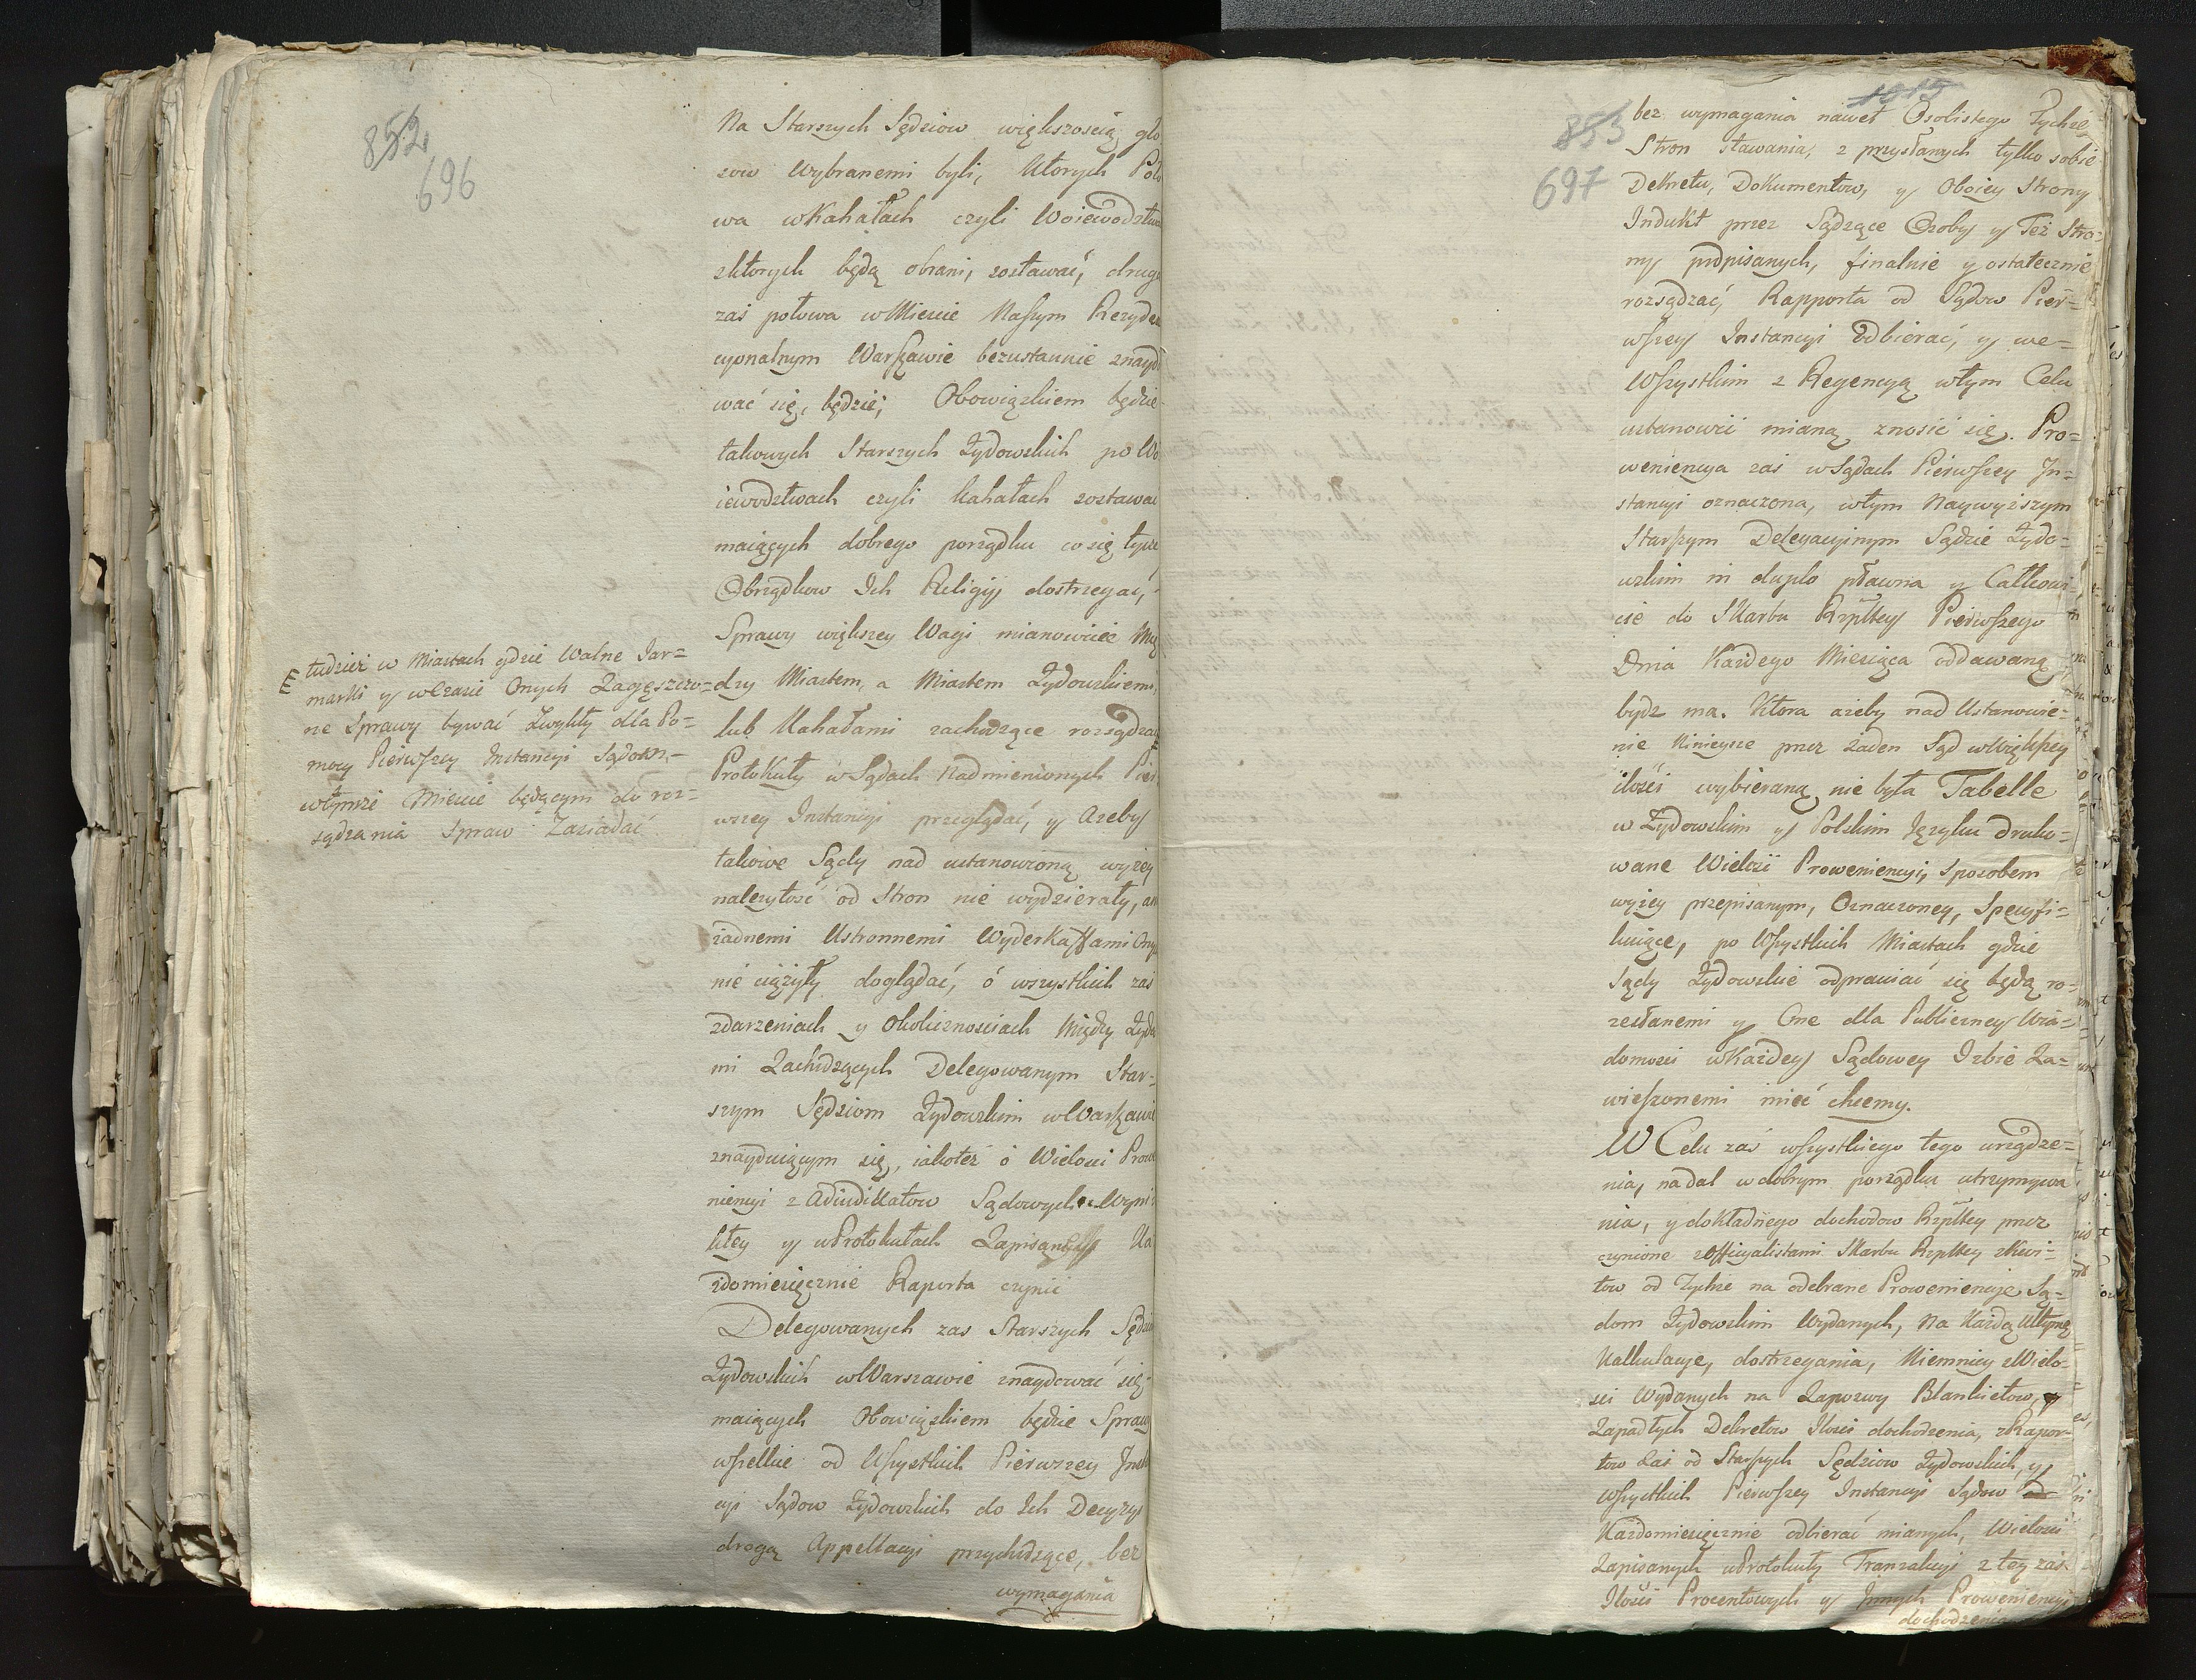 852
696
Na Starszych Sędziow większoscią gło
sow Wybranemi byli, Ktorych Poło
wa w Kahałach czyli Woiewodztwa
z ktorych będą obrani, zostawać, drug
zaś połowa w Miescie Naszym Rezyden
cyonalnym Warszawie bezustannie znayd
wać się, będzie; Obowiązkiem będzie
takowych Starszych Zydowskich po Wo
iewodztwach czyli Kahałach zostawać
maiących dobrego porządku co się tycze
Obrządkow Ich Religij dostrzegać,
Sprawy większey Wagi mianowicie Mię
dzy Miastem, a Miastem Zydowskiem,
lub Kahałami zachodzące rozsądzać
Protokuły w Sądach Nadmienionych Pier
wszey Instancyi przeglądać, y Azeby
takowe Sądy nad ustanowioną wyzey
nalezytość od Stron nie wydzierały, an
żadnemi Ustronnemi Wyderkassami Onych
nie ciążyły doglądać, ó wszystkich zaś
zdarzeniach y Okolicznosciach Między Zyda
mi Zachodzących Delegowanym Star=
szym Sędziom Zydowskim w Warszawie
znayduiącym się, iakoteż o Wielosci Prowe
niencyi z Adiudikatow Sądowych Wyni
kłey y w Protokułach Zapisaney Ka
zdomiesięcznie Raporta czynić
Delegowanych zas Starszych Sędziow
Zydowskich w Warszawie znaydować się
maiących Obowiązkiem będzie Sprawy
wszelkie od Wszystkich Pierwszey Instan
cyi Sądow Zydowskich do Ich Decyzyi
drogą Appellacyi przychodzące, bez
wymagania
E tudzież w Miastach gdzie Walne Jar=
marki y w Czasie Onych Zagęszczo=
ne Sprawy bywać Zwykły dla Po=
mocy Pierwszey Instancyi Sądom,=
w tymże Miescie będącym do roz=
sądzania Spraw Zasiadać
1015
853
697
bez wymagania nawet Osobistego Tychże
Stron stawania, z przysłanych tylko sobie
Dekretu, Dokumentow, y Oboiey Strony
Indukt przez Sądzące Osoby y Też Stro=
ny podpisanych, finalnie y ostatecznie
rozsądzać, Rapporta od Sądow Pier=
wszey Instancyi Odbierać, y we=
Wszystkim z Regencyą w tym Celu
ustanowić mianą znosić się. Pro=
weniencya zaś w Sądach Pierwszey In=
stancyi oznaczona, w tym Naywyższym
Starszym Delegacyinym Sądzie Zydo=
wskim in duplo płatna y Całkowi=
cie do Skarbu Rzpltey Pierwszego
Dnia Każdego Miesiąca oddawaną
bydz ma. Ktora ażeby nad Ustanowie=
nie Ninieysze przez żaden Sąd w Większey
ilości wybieraną nie była Tabelle
w Zydowskim y Polskim Języku druko=
wane Wielość Proweniencyi, sposobem
wyżey przepisanym, Oznaczoney, Specyfi=
kuiące, po Wszystkich Miastach gdzie
Sądy Zydowskie odprawiać się będą ro=
zesłanemi y One dla Publiczney Wia=
domosci w Każdey Sądowey Izbie Za=
wieszonemi mieć chcemy.
W Celu zaś wszystkiego tego urządze=
nia, nadal w dobrym porządku utrzymywa
nia, y dokładnego dochodow Rzpltey przez
czynione z Officyalistami Skarbu Rzpltey z Kwi=
tow od Tychże na odebrane Proweniencye Są=
dom Zydowskim Wydanych, Na Każdą Ultymę
Kalkulacye, dostrzegania, Niemniey z Wielo=
ści Wydanych na Zapozwy Blankietow, y
Zapadłych Dekretow Ilosci dochodzenia, z Rapor=
tow Zaś od Starszych Sędziow Zydowskich, y
wszystkich Pierwszey Instancyi Sądow
Każdomiesięcznie odbierać mianych, Wielosci
Zapisanych w Protokuły Tranzakcyi z tey zaś
Ilości Procentowych y Innych Proweniencyi
dochodzenia